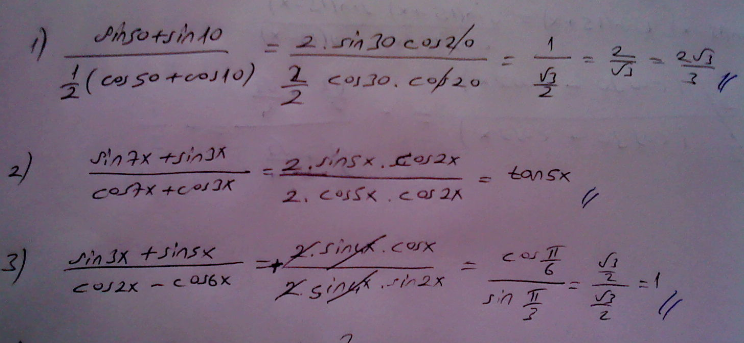 1) (sin50+sin10) / (1/2 (cos50+cos10)) = (2. sin30 cos20) / (2/2 cos30. cos20) = 1 / (√3/2) = 2/√3 = 2√3/3 //
2) (sin7x + sin3x) / (cos7x + cos3x) = (2. sin5x. cos2x) / (2. cos5x. cos2x) = tan5x //
3) (sin3x + sin5x) / (cos2x - cos6x) = + (2. sin4x. cosx) / (2. sin4x. sin2x) = (cos π/6) / (sin π/3) = (√3/2) / (√3/2) = 1 //